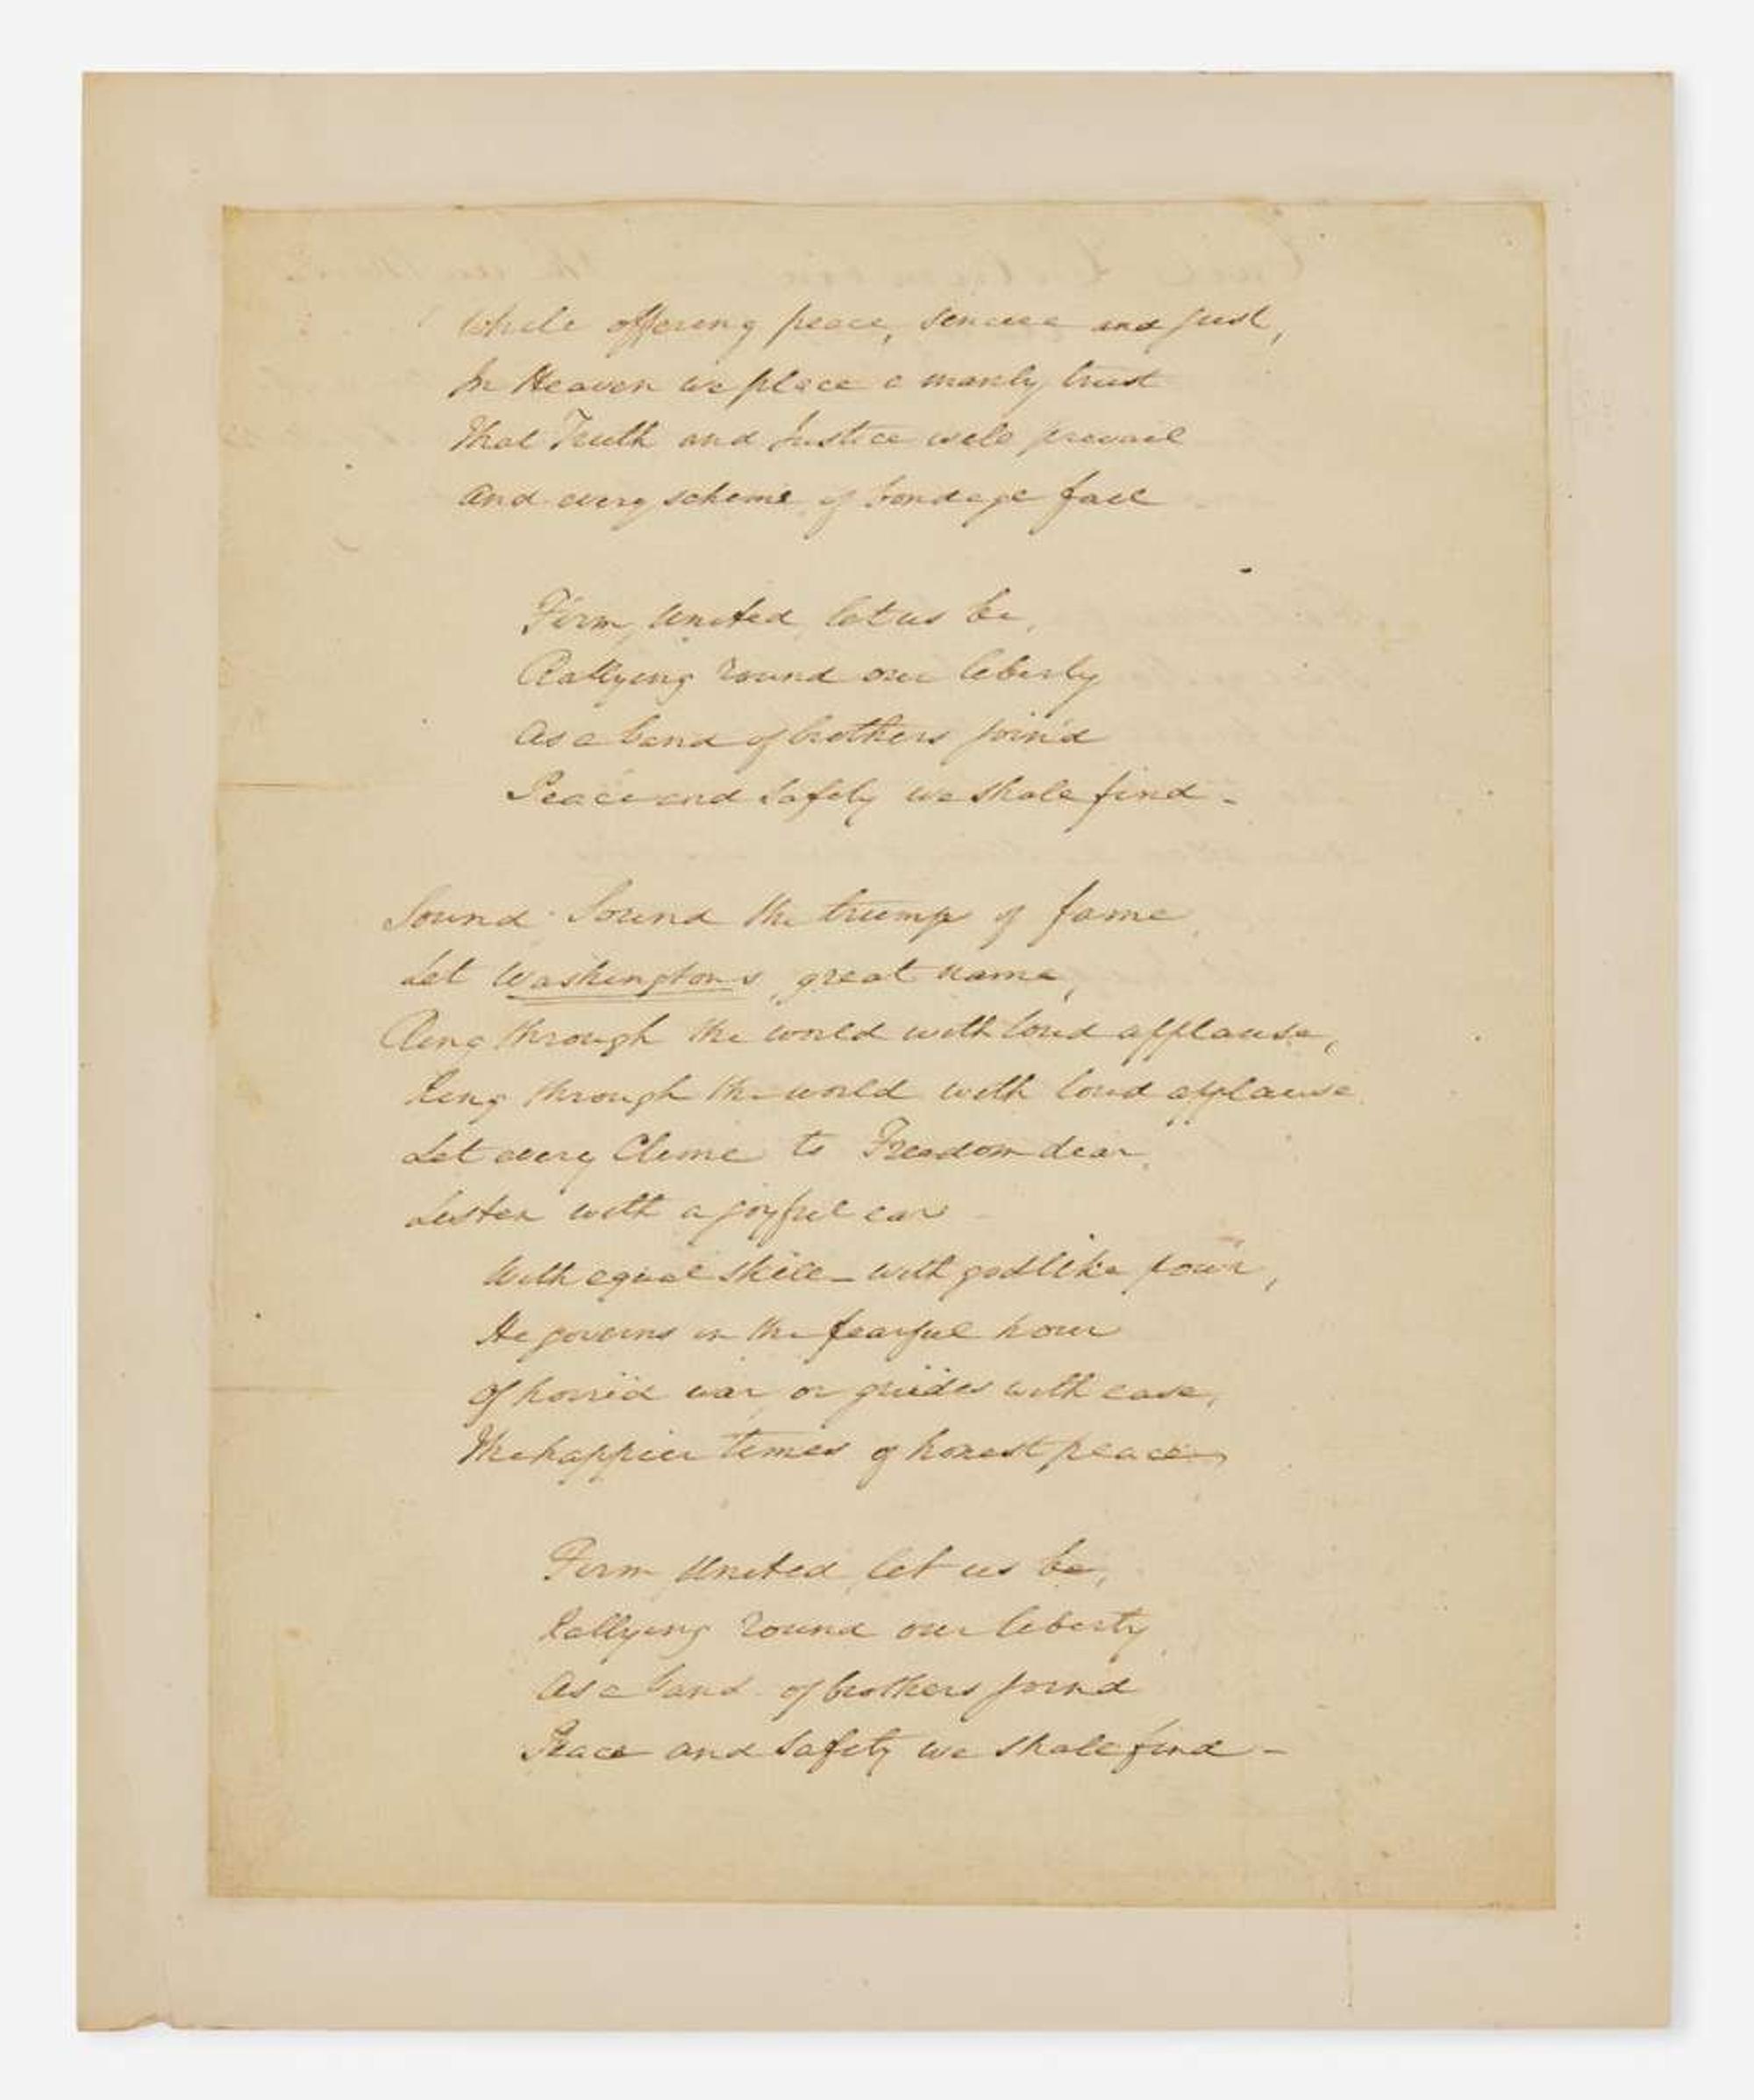 While offering peace, sincere and just,
In Heaven we place a manly trust
That Truth and Justice will prevail
And every scheme of bondage fail
Firm, United, let us be,
Rallying round our liberty
As a band of brothers join'd
Peace and Safety we shall find -
Sound Sound the trump of fame,
Let Washingtons great name,
Ring through the world with loud applause,
Ring through the world with loud applause,
Let every Clime to Freedom dear,
Listen with a joyful ear -
With equal skill - with godlike pow'r,
He governs in the fearful hour
Of horrid war, or guides with ease,
The happier times of honest peace,
Firm, United, let us be,
Rallying round our liberty,
As a band of brothers joind
Peace and Safety we shall find -